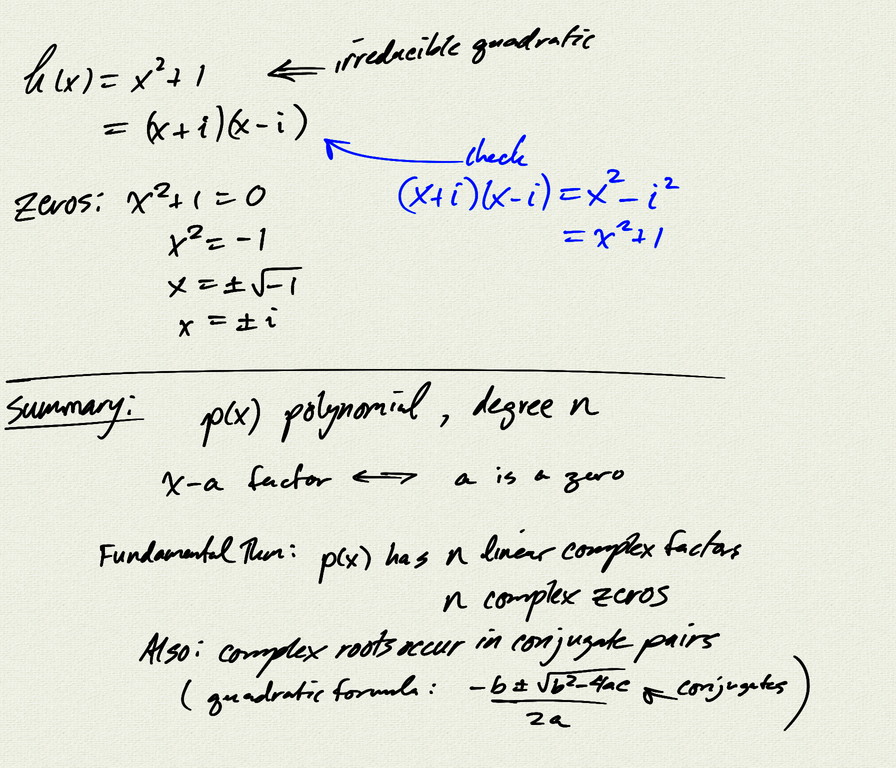 h(x) = x² + 1 ⟸ irreducible quadratic
= (x+i)(x-i)
check
zeros: x² + 1 = 0
(x+i)(x-i) = x² - i²
x² = -1
= x² + 1
x = ±√-1
x = ± i
Summary: p(x) polynomial, degree n
x-a factor ⟺ a is a zero
Fundamental Thm: p(x) has n linear complex factors
n complex zeros
Also: complex roots occur in conjugate pairs
(quadratic formula: (-b ± √b²-4ac)/2a ← conjugates)